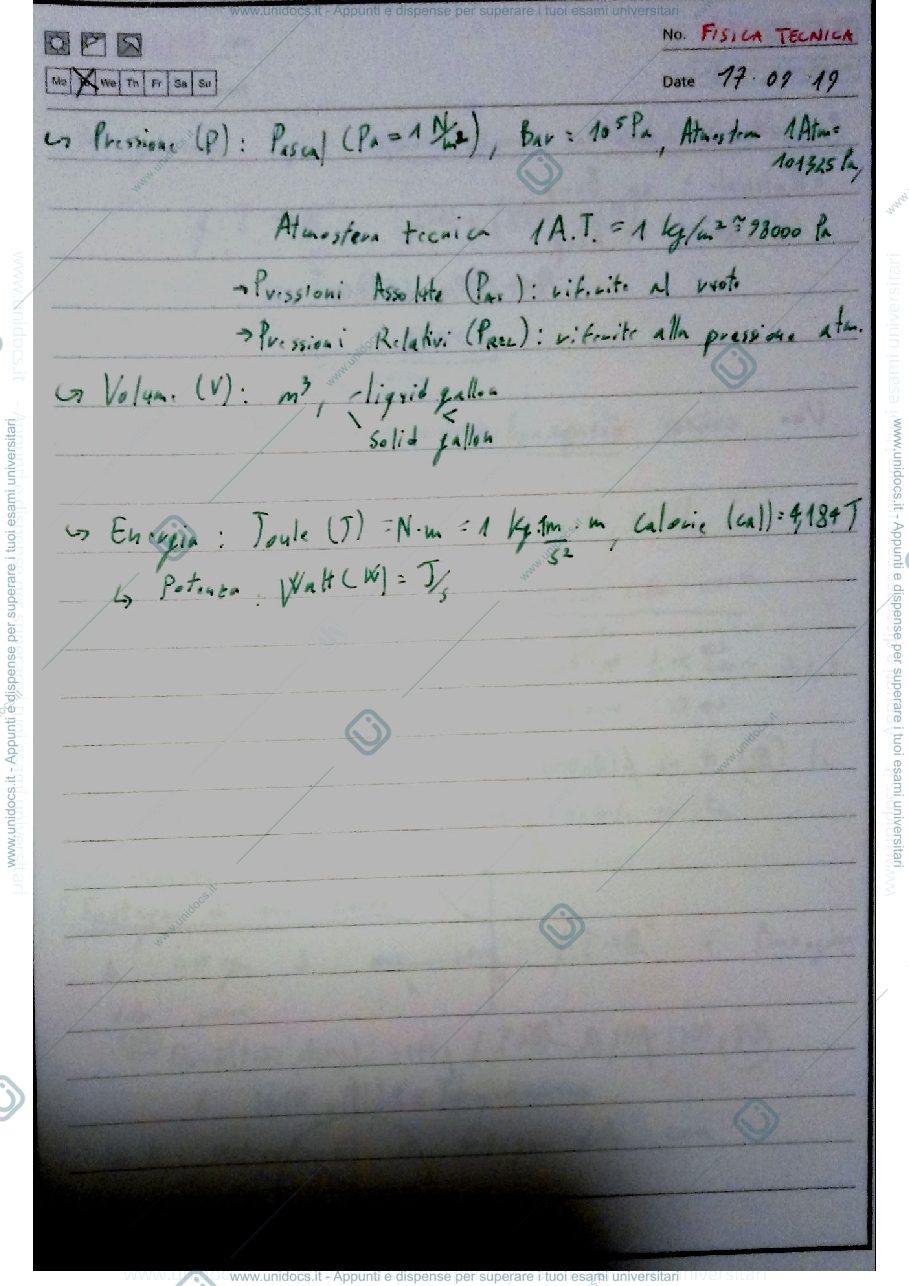 www.unidocs.it - Appunti e dispense per superare i tuoi esami universitari
No. FISICA TECNICA
Mo We Th Fr Sa Su
Date 17 09 19
↳ Pressione (P): Pascal (Pa = 1 N/m²), Bar = 10⁵ Pa, Atmosfera 1 Atm =
101325 Pa,
Atmosfera tecnica 1 A.T. = 1 kg/m² ≈ 98000 Pa
→ Pressioni Assolute (Pass): riferite al vuoto
→ Pressioni Relativi (PREL): riferite alla pressione atm.
↳ Volume (V): m³, liquid gallon
solid gallon
↳ Energia: Joule (J) = N·m = 1 kg·1m/s² · m, calorie (cal) = 4,184 J
↳ Potenza: Watt (W) = J/s
www.unidocs.it - Appunti e dispense per superare i tuoi esami universitari
www.unidocs.it - Appunti e dispense per superare i tuoi esami universitari
www.unidocs.it - Appunti e dispense per superare i tuoi esami universitari